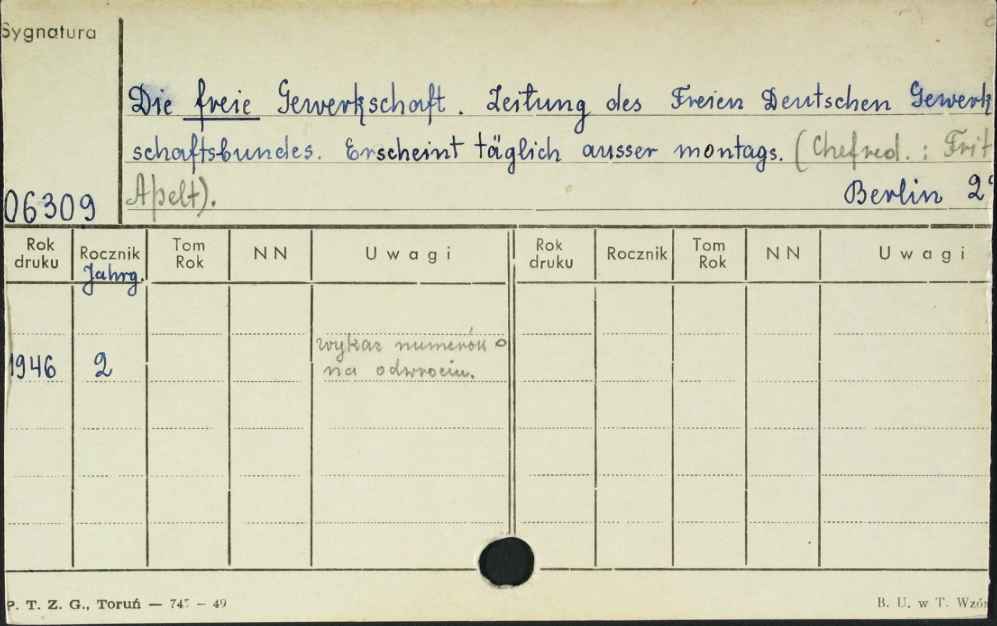 Sygnatura
Die freie Gewerkschaft. Zeitung des Freien Deutschen Gewerk
schaftsbundes. Erscheint täglich ausser montags. (Chefred.: Frit
06309 Apelt). Berlin 2°
Rok druku Rocznik Tom Rok NN Uwagi Rok druku Rocznik Tom Rok NN Uwagi
Jahrg.
wykaz numerów
1946 2 na odwrociu.
P. T. Z. G., Toruń — 747 – 49 B. U. w T. Wzór